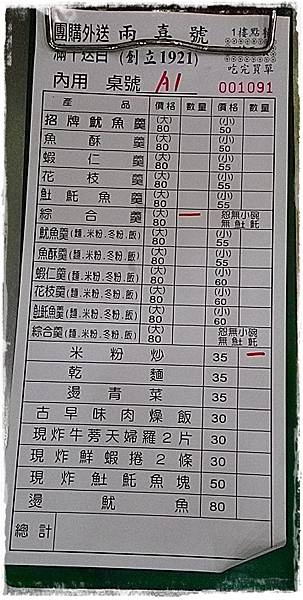 團購外送 兩喜號 1樓點餐
滿千送百 (創立1921)
內用 桌號 A1 吃完買單
001091
產品 價格 數量 價格 數量
招牌魷魚羹 (大)80 (小)50
魚酥羹 (大)80 (小)55
蝦仁羹 (大)80 (小)55
花枝羹 (大)80 (小)55
𩵚魠魚羹 (大)80 (小)55
綜合羹 (大)80 一 恕無小碗 無𩵚魠
魷魚羹(麵、米粉、冬粉、飯) (大)80 (小)55
魚酥羹(麵、米粉、冬粉、飯) (大)80 (小)55
蝦仁羹(麵、米粉、冬粉、飯) (大)80 (小)60
花枝羹(麵、米粉、冬粉、飯) (大)80 (小)60
𩵚魠魚羹(麵、米粉、冬粉、飯) (大)80 (小)60
綜合羹(麵、米粉、冬粉、飯) (大)80 恕無小碗 無𩵚魠
米粉炒 35 一
乾麵 35
燙青菜 35
古早味肉燥飯 30
現炸牛蒡天婦羅2片 30
現炸鮮蝦捲2條 30
現炸𩵚魠魚塊 50
燙魷魚 80
總計